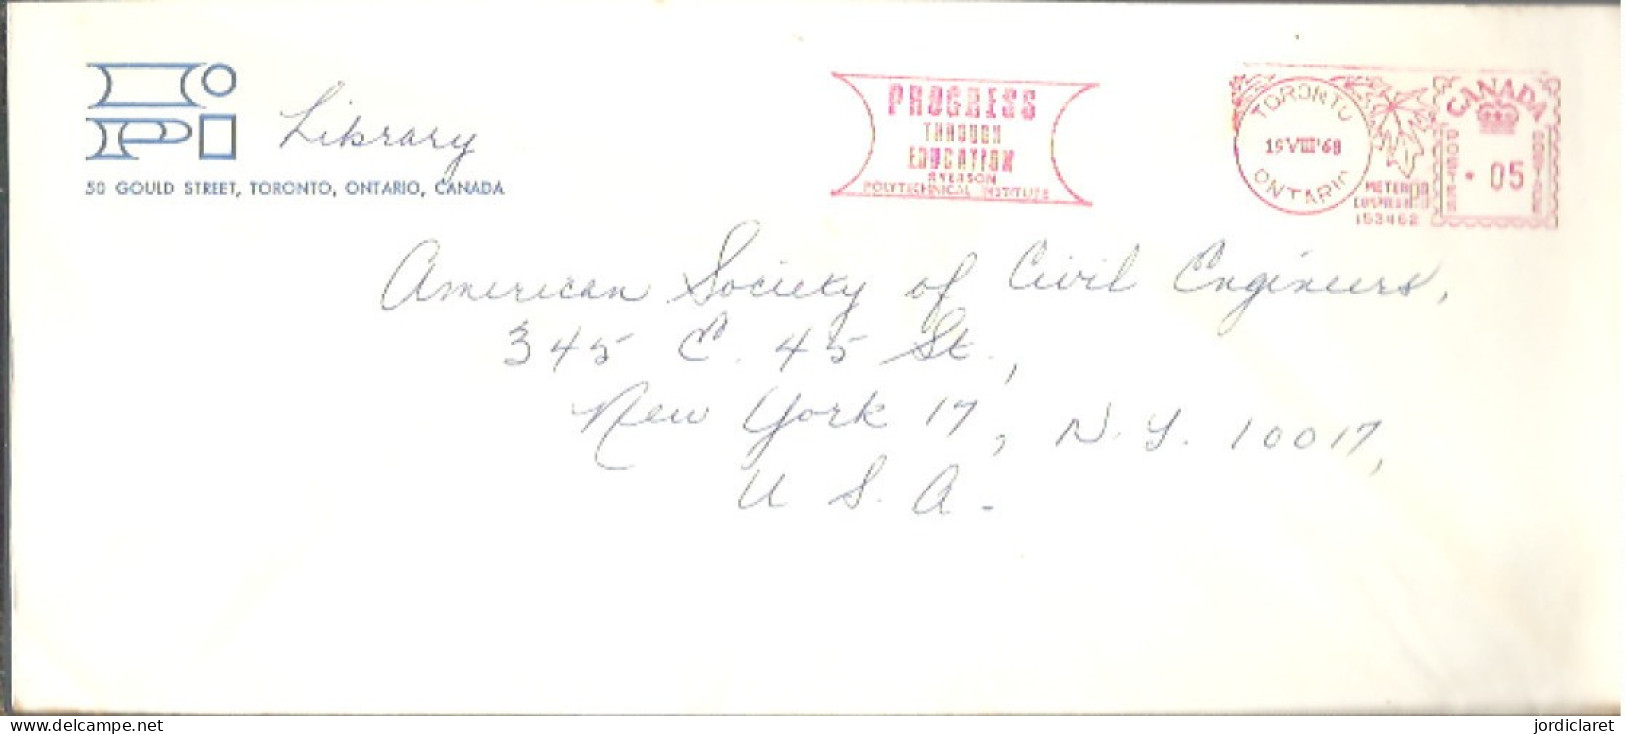 Library
50 GOULD STREET, TORONTO, ONTARIO, CANADA
PROGRESS
THROUGH
EDUCATION
RYERSON
POLYTECHNICAL INSTITUTE
TORONTO
19 VIII '68
ONTARIO
METER
153462
CANADA
POSTES
POSTAGE
05
American Society of Civil Engineers,
345 E. 45 St.,
New York 17, N.Y. 10017,
U.S.A.
www.delcampe.net
jordiclaret